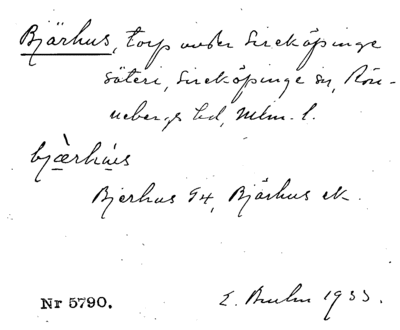 Bjärhus, torp under Sireköpinge
säteri, Sireköpinge sn, Rön-
nebergs hd, Mlm. l.
bjæ̀rhús
Bjerhus GK, Bjärhus ek.
Nr 5790.
E. 1933.